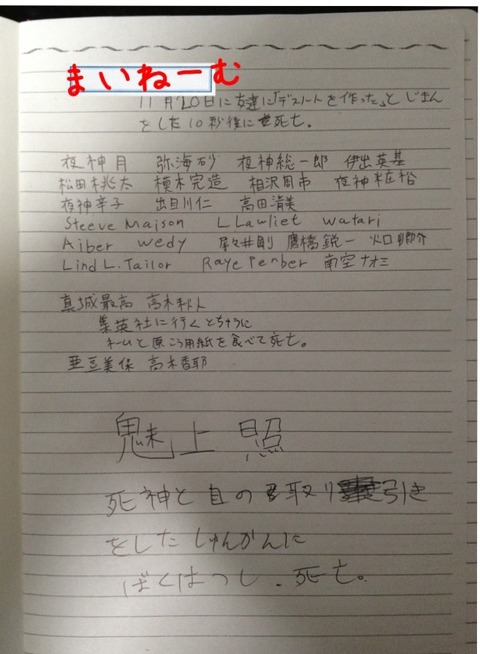 まいねーむ
11月20日に友達に「デスノートを作った」とじまん
をした10秒後に死亡。
夜神月 弥海砂 夜神総一郎 伊出英基
松田桃太 模木完造 相沢周市 夜神粧裕
夜神幸子 出目川仁 高田清美
Steeve Maison L Lawliet watari
Aiber wedy 尾々井剛 鷹橋鋭一 火口卿介
Lind L. Tailor Raye Penber 南空ナオミ
真城最高 高木秋人
集英社に行くとちゅうに
ネームと原こう用紙を食べて死亡。
亜豆美保 高木香耶
魅上照
死神と目の取り引き
をしたしゅんかんに
ばくはつし、死亡。